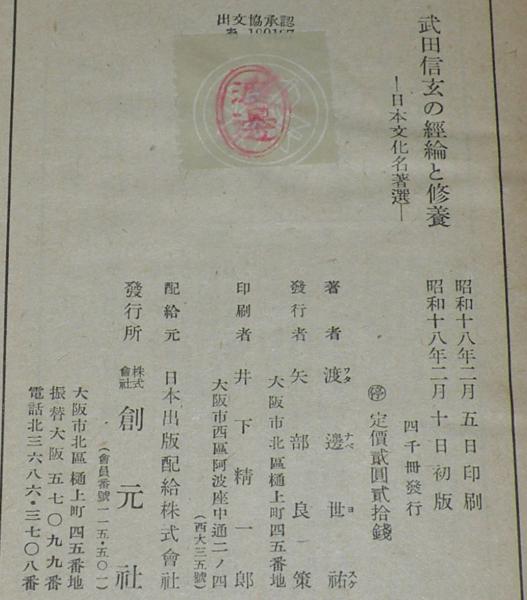 出文協承認
武田信玄の經綸と修養
―日本文化名著選―
昭和十八年二月五日印刷
昭和十八年二月十日初版
四千冊發行
停 定價貳圓貳拾錢
著者 渡邊世祐
ワタ ナベ ヨ スケ
發行者 矢部良策
大阪市北區樋上町四五番地
印刷者 井下精一郎
大阪市西區阿波座中通二ノ四
(西大三五號)
配給元 日本出版配給株式會社
發行所 株式會社 創元社
(會員番號一一五・五〇一)
大阪市北區樋上町四五番地
振替大阪五七〇九九番
電話北三六八六・三七〇八番
渡邊